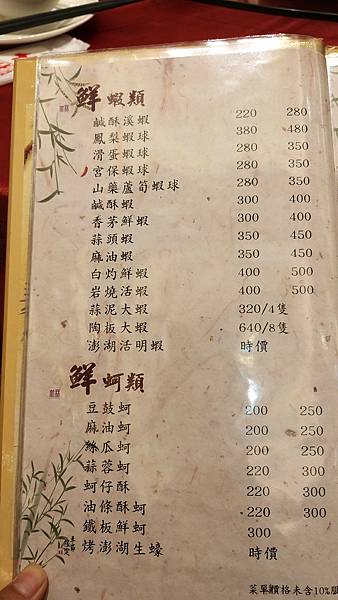 鮮蝦類
鹹酥溪蝦 220 280
鳳梨蝦球 380 480
滑蛋蝦球 280 350
宮保蝦球 280 350
山藥蘆筍蝦球 280 350
鹹酥蝦 300 400
香茅鮮蝦 300 400
蒜頭蝦 350 450
麻油蝦 350 450
白灼鮮蝦 400 500
岩燒活蝦 400 500
蒜泥大蝦 320/4隻
陶板大蝦 640/8隻
澎湖活明蝦 時價
鮮蚵類
豆鼓蚵 200 250
麻油蚵 200 250
絲瓜蚵 200 250
蒜蓉蚵 220 300
蚵仔酥 220 300
油條酥蚵 220 300
鐵板鮮蚵 300
烤澎湖生蠔 時價
菜單價格未含10%服